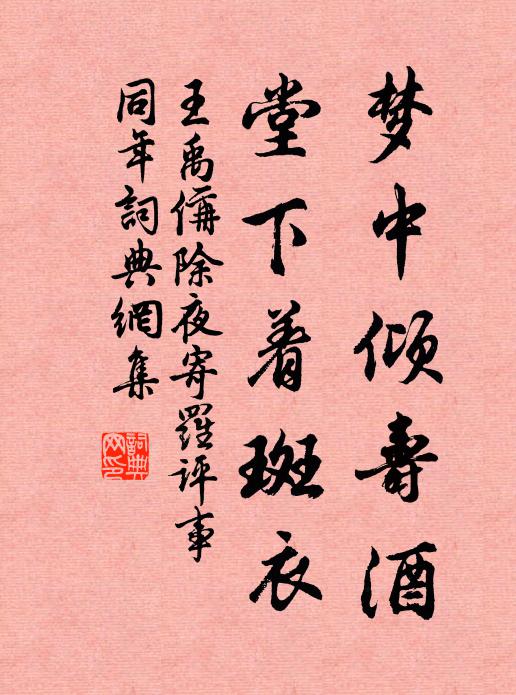 梦中倾寿酒
堂下着斑衣
王禹偁除夜寄羅评事
同年詞典網集
詞典网印